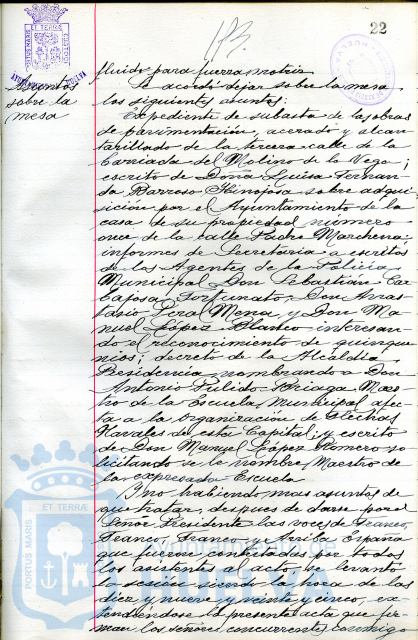 22
Asuntos
sobre la
mesa
fluido para fuerza motriz
Se acordó dejar sobre la mesa
los siguientes asuntos:
Expediente de subasta de las obras
de pavimentación, acerado y alcan-
tarillado de la tercera calle de la
Barriada del Molino de la Vega;
escrito de Doña Luisa Fernan-
da Barroso Hinojosa sobre adqui-
sición por el Ayuntamiento de la
casa de su propiedad número
once de la calle Padre Marchena;
informes de Secretaría a escritos
de los Agentes de la Policía
Municipal Don Sebastián Car-
bajosa Fortunato, Don Anas-
tasio Mena, y Don Ma-
nuel López Blanco interesan-
do el reconocimiento de quinque-
nios; decreto de la Alcaldía
Presidencia nombrando a Don
Antonio Pulido Maes-
tro de la Escuela Municipal afec-
ta a la organización de Flechas
Navales de esta Capital; y escrito
de Don Manuel López Romero so-
licitando se le nombre Maestro de
la expresada Escuela
Y no habiendo mas asuntos de
que tratar, despues de darse por el
Señor Presidente las voces de Franco,
Franco, Franco y Arriba España
que fueron contestadas por todos
los asistentes al acto, se levantó
la sesión siendo la hora de las
diez y nueve y veinte y cinco, ex-
tendiéndose la presente acta que fir-
man los señores concurrentes conmigo
PORTUS MARIS
ET TERRÆ